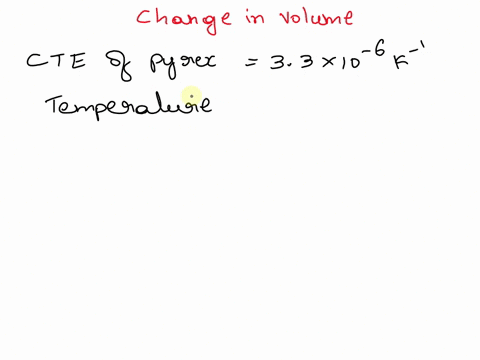 Change in volume
CTE of pyrex = 3.3 × 10⁻⁶ K⁻¹
Temperature